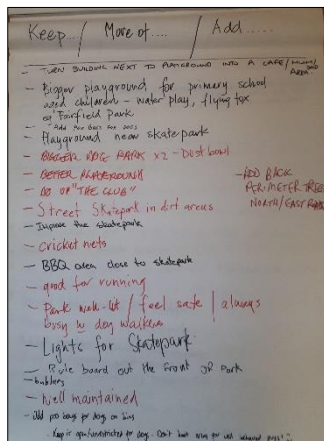 Keep... / More of.... / Add.....
- TURN BUILDING NEXT TO PLAYGROUND INTO A CAFE/
AREA
- Bigger playground for primary school
aged children - water play, flying fox
eg Fairfield Park
- Add Poo Bags for dogs
- Playground near skatepark
- BIGGER DOG PARK x2 - Dust bowl
- BETTER PLAYGROUND
- DO UP "THE CLUB"
- ADD BACK
PERIMETER TREES
NORTH/EAST
- Street Skatepark in dirt areas
- Improve the skatepark
- cricket nets
- BBQ area close to skatepark
- good for running
- Park well-lit / feel safe / always
busy w dog walkers
- Lights for Skatepark
- Rule board out the front of park
- bubblers
- Well maintained
- Add poo bags for dogs on bins
- Keep it open/unrestricted for dogs. Don't have rules for well behaved dogs!